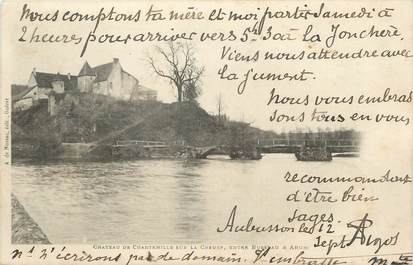 Nous comptons ta mère et moi partir Samedi à
2 heures pour arriver vers 5h à la Jonchère.
Viens nous attendre avec
la jument.
Nous vous embras
sons tous en vous
recommandant
d'être bien
sages.
Aubusson le 12
Sept
N. n'écrirons pas demain. t'embrasse
CHATEAU DE CHANTEMILLE SUR LA CREUSE, ENTRE BUSSEAU & AHUN
A. de Nussac, édit., Guéret